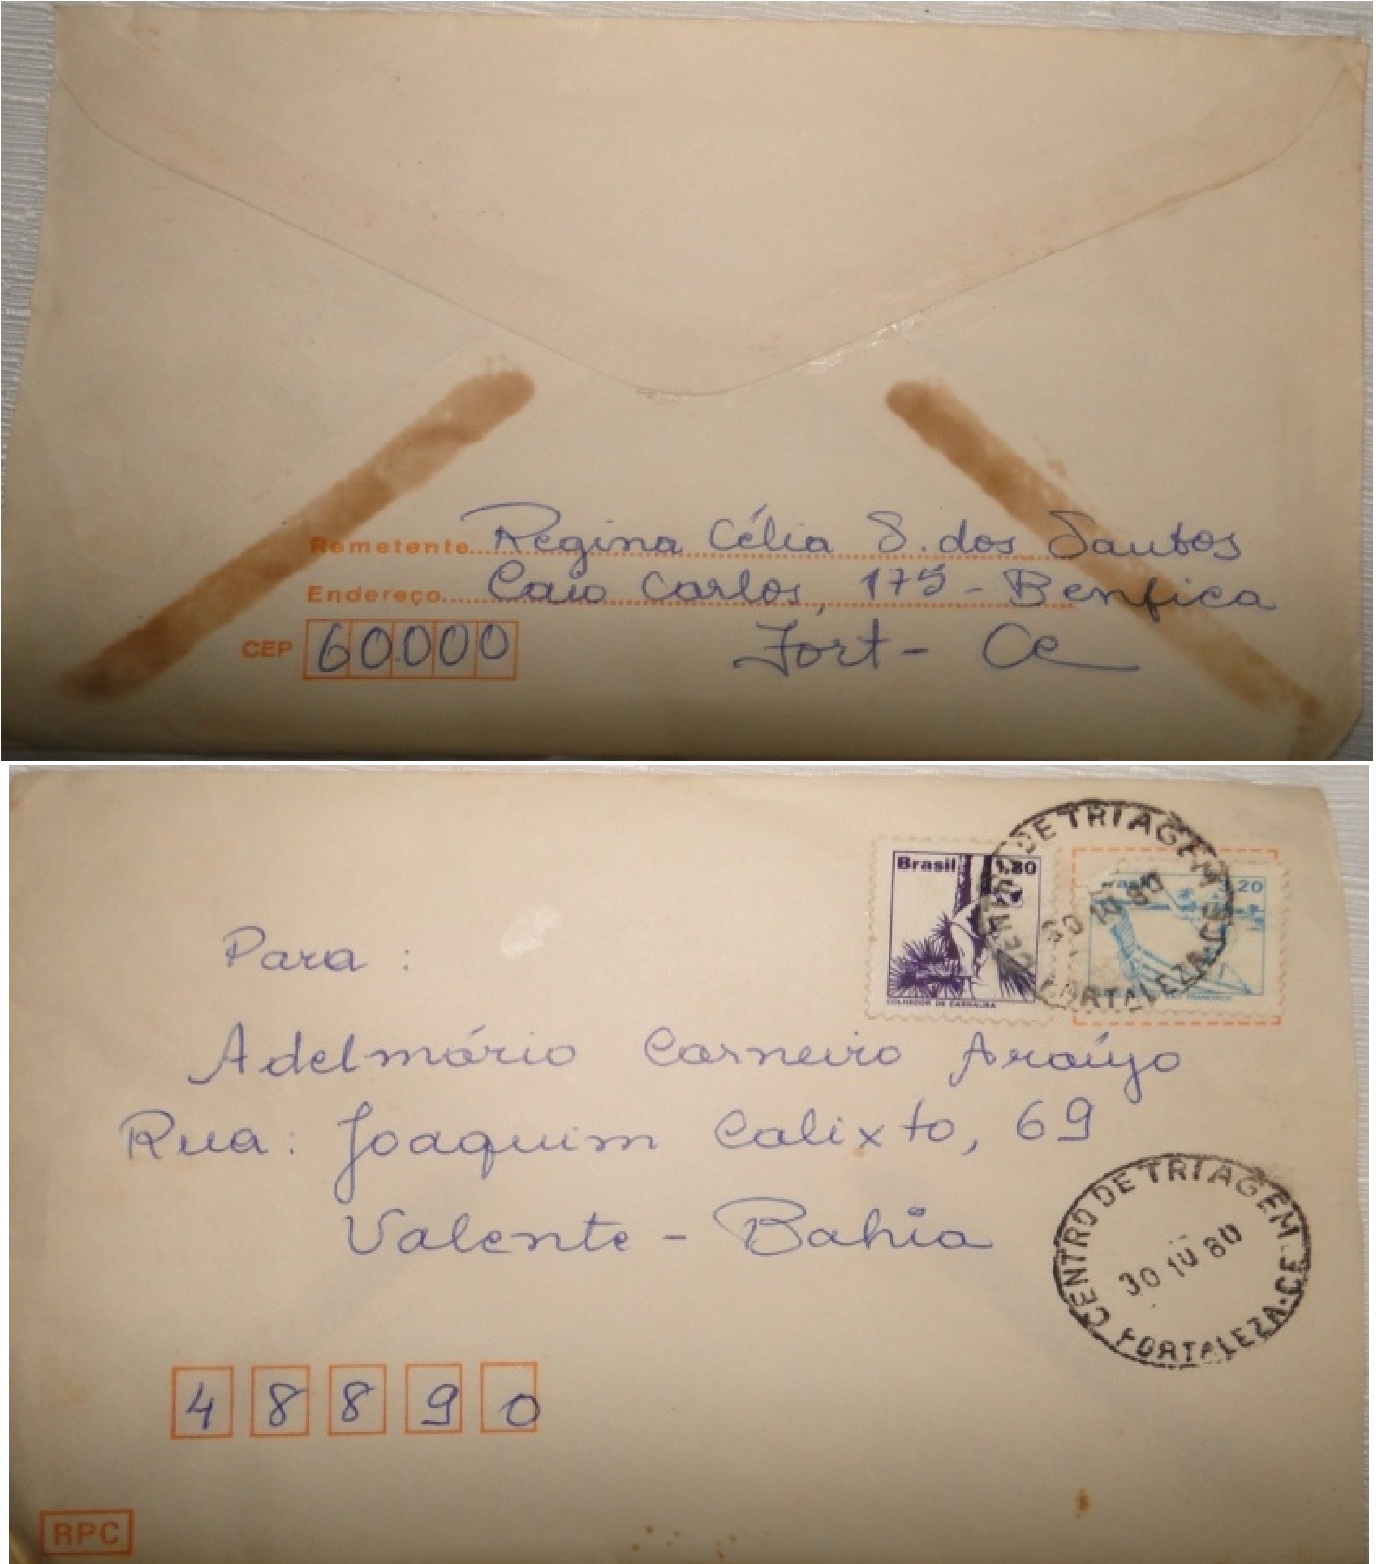 Remetente Regina Célia S. dos Santos
Endereço Caio Carlos, 175 - Benfica
CEP 60.000 Fort - Ce
CENTRO DE TRIAGEM
30 10 80
FORTALEZA-CE
Brasil 1,80
20
COLHEDOR DE CARNAÚBA
SÃO FRANCISCO
Para :
Adelmário Carneiro Araújo
Rua: Joaquim Calixto, 69
Valente - Bahia
CENTRO DE TRIAGEM
30 10 80
FORTALEZA-CE
4 8 8 9 0
RPC